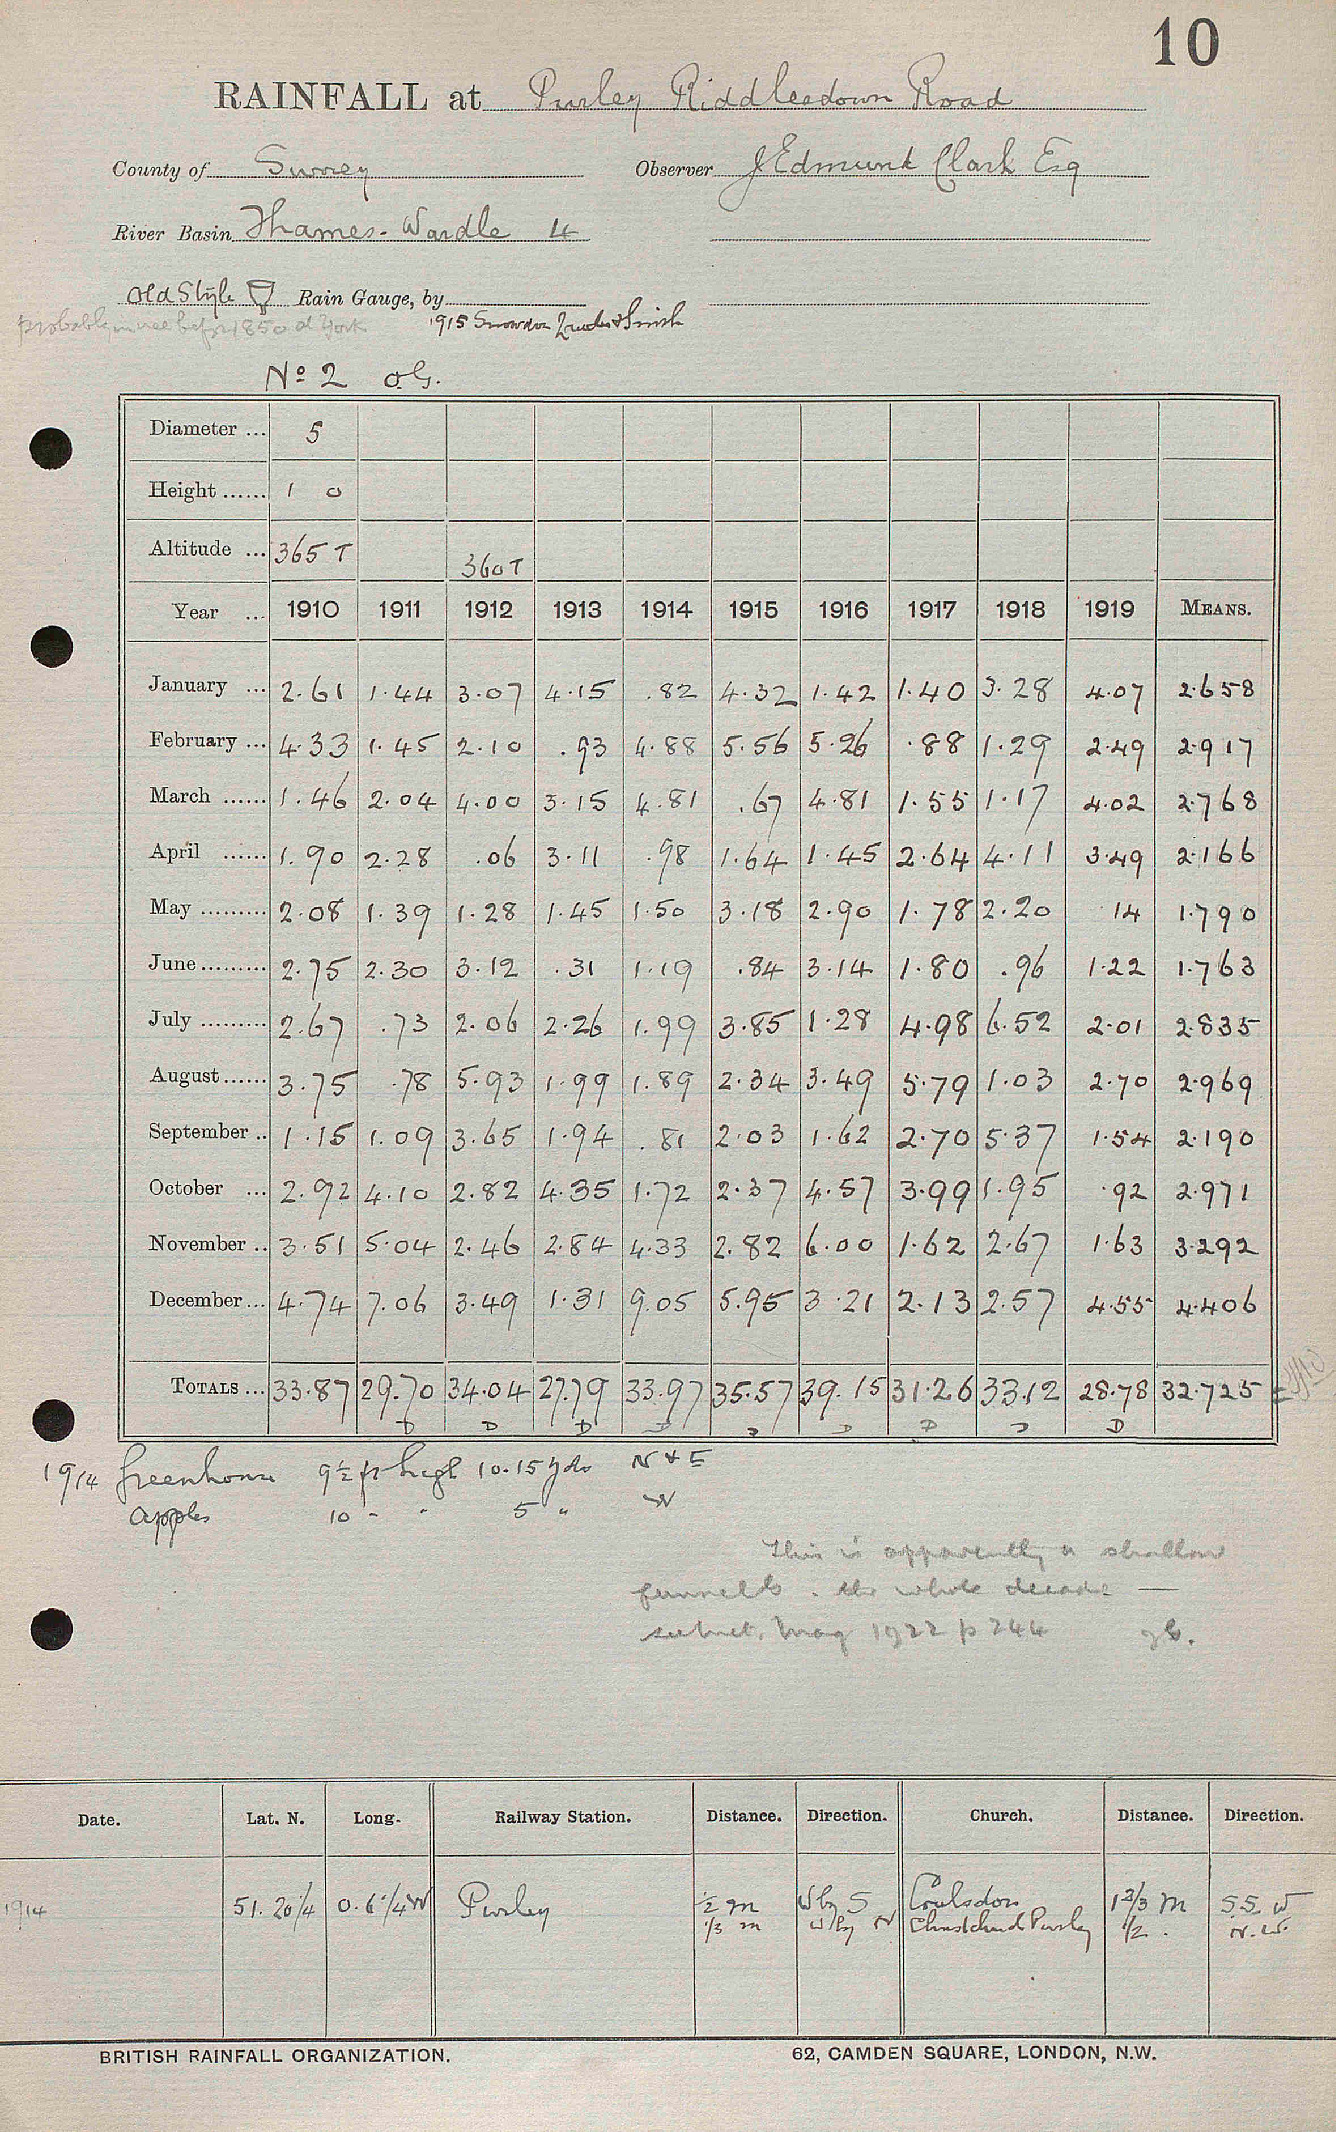 10
RAINFALL at Purley Riddlesdown Road
County of Surrey Observer J Edmund Clark Esq
River Basin Thames-Wandle 4
Old Style Rain Gauge, by
probably in use before 1850 at York 1915 Snowdon
No 2 o.G.
Diameter ... 5
Height ...... 1 0
Altitude ... 365 T 360 T
Year ... 1910 1911 1912 1913 1914 1915 1916 1917 1918 1919 MEANS.
January ... 2.61 1.44 3.07 4.15 .82 4.32 1.42 1.40 3.28 4.07 2.658
February ... 4.33 1.45 2.10 .93 4.88 5.56 5.26 .88 1.29 2.49 2.917
March ...... 1.46 2.04 4.00 3.15 4.81 .67 4.81 1.55 1.17 4.02 2.768
April ...... 1.90 2.28 .06 3.11 .98 1.64 1.45 2.64 4.11 3.49 2.166
May ......... 2.08 1.39 1.28 1.45 1.50 3.18 2.90 1.78 2.20 14 1.790
June ......... 2.75 2.30 3.12 .31 1.19 .84 3.14 1.80 .96 1.22 1.763
July ......... 2.67 .73 2.06 2.26 1.99 3.85 1.28 4.98 6.52 2.01 2.835
August ...... 3.75 .78 5.93 1.99 1.89 2.34 3.49 5.79 1.03 2.70 2.969
September .. 1.15 1.09 3.65 1.94 .81 2.03 1.62 2.70 5.37 1.54 2.190
October ... 2.92 4.10 2.82 4.35 1.72 2.37 4.57 3.99 1.95 .92 2.971
November .. 3.51 5.04 2.46 2.84 4.33 2.82 6.00 1.62 2.67 1.63 3.292
December ... 4.74 7.06 3.49 1.31 9.05 5.95 3.21 2.13 2.57 4.55 4.406
TOTALS ... 33.87 29.70 34.04 27.79 33.97 35.57 39.15 31.26 33.12 28.78 32.725
D D D D D D D D D
1914 Greenhouse 9½ ft high 10.15 yds N & E
Apples 10 " " 5 " W
This is apparently a shallow
funnel . the whole decade —
Mag 1922 p 244
Date. Lat. N. Long. Railway Station. Distance. Direction. Church. Distance. Direction.
1914 51.20 1/4 0.6 1/4 W Purley ½ m W by S Coulsdon 1 2/3 m S.S.W
1/3 m W by N Christchurch Purley ½ . N.W.
BRITISH RAINFALL ORGANIZATION. 62, CAMDEN SQUARE, LONDON, N.W.